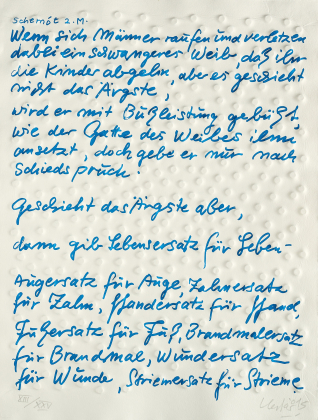 Schemōt 2. M.
Wenn sich Männer raufen und verletzen
dabei ein schwangeres Weib, daß ihr
die Kinder abgehn, aber es geschieht
nicht das Ärgste,
wird er mit Bußleistung gebüßt,
wie der Gatte des Weibes ihm
ansetzt, doch gebe er nur nach
Schiedspruch.
Geschieht das Ärgste aber,
dann gib Lebensersatz für Leben-
Augersatz für Auge, Zahnersatz
für Zahn, Handersatz für Hand,
Fußersatz für Fuß, Brandmalersatz
für Brandmal, Wundersatz
für Wunde, Striemersatz für Strieme